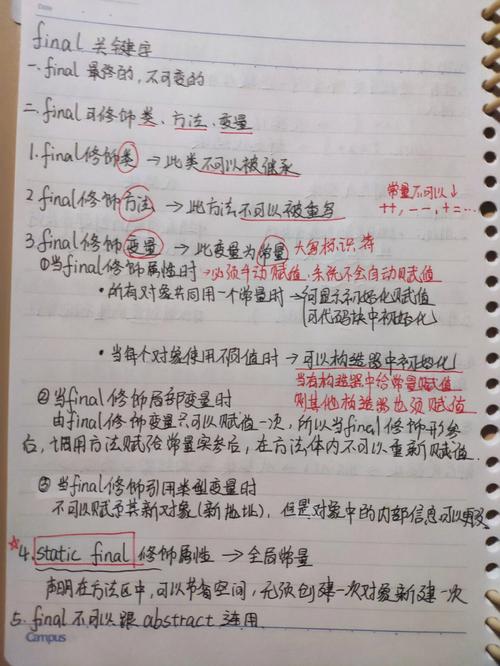 Date
final 关键字
一. final 最终的, 不可变的
二. final 可修饰类、方法、变量
1. final修饰类 → 此类不可以被继承
2. final修饰方法 → 此方法不可以被重写
常量不可以↓
++, --, += …
3. final修饰变量 → 此变量为常量 大写标识符
①当final修饰属性时 → 必须手动赋值, 系统不会自动赋值
• 所有对象共同用一个常量时 → 可显示初始化赋值
可代码块中初始化
• 当每个对象使用不同值时 → 可以构造器中初始化
当有构造器中给常量赋值
则其他构造器也须赋值
②当final修饰局部变量时
由final修饰变量只可以赋值一次, 所以当final修饰形参
后, 调用方法赋给常量实参后, 在方法体内不可以重新赋值.
③当final修饰引用类型变量时
不可以赋予其新对象(新地址), 但是对象中的内部信息可以更改
☆4. static final 修饰属性 → 全局常量
声明在方法区中, 可以节省空间, 无须创建一次对象新建一次
5. final 不可以跟 abstract 连用
Campus